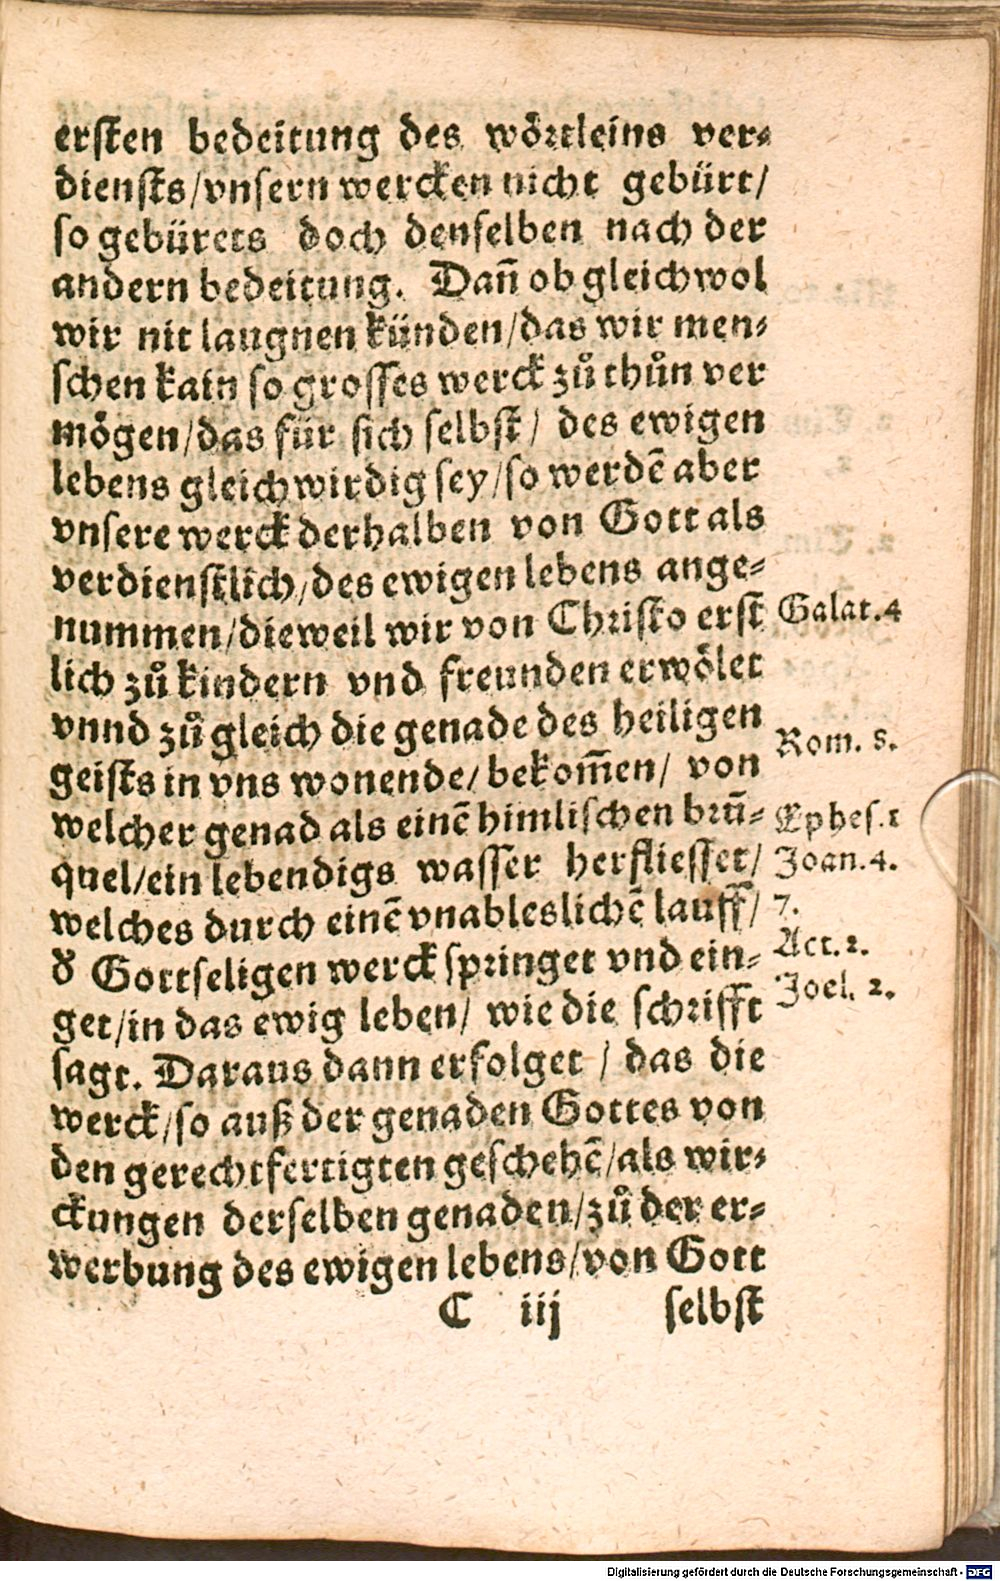 ersten bedeitung des wörtleins ver⸗
diensts/vnsern wercken nicht gebürt/
so gebürets doch denselben nach der
andern bedeitung. Dañ ob gleichwol
wir nit laugnen künden/das wir men⸗
schen kain so grosses werck zů thůn ver
mögen/das für sich selbst/ des ewigen
lebens gleichwirdig sey/so werdē aber
vnsere werck derhalben von Gott als
verdienstlich/des ewigen lebens ange⸗
nummen/dieweil wir von Christo erst
lich zů kindern vnd freunden erwölet
vnnd zů gleich die genade des heiligen
geists in vns wonende/ bekom̃en/ von
welcher genad als einē himlischen brũ⸗
quel/ein lebendigs wasser herfliesset/
welches durch einē vnableslichē lauff/
d̕ Gottseligen werck springet vnd ein⸗
get/in das ewig leben/ wie die schrifft
sagt. Daraus dann erfolget / das die
werck/so auß der genaden Gottes von
den gerechtfertigten geschehē/als wir⸗
ckungen derselben genaden/zů der er⸗
werbung des ewigen lebens/von Gott
C iij selbst
Galat.4
Rom. 8.
Ephes.1
Joan.4.
7.
Act.2.
Joel. 2.
Digitalisierung gefördert durch die Deutsche Forschungsgemeinschaft - DFG